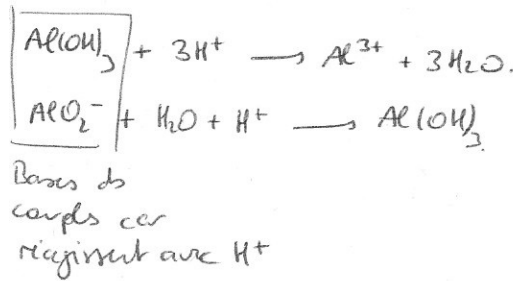 Al(OH)₃ + 3H⁺ → Al³⁺ + 3H₂O.
AlO₂⁻ + H₂O + H⁺ → Al(OH)₃.
Bases ds
couples car
réagissent avec H⁺